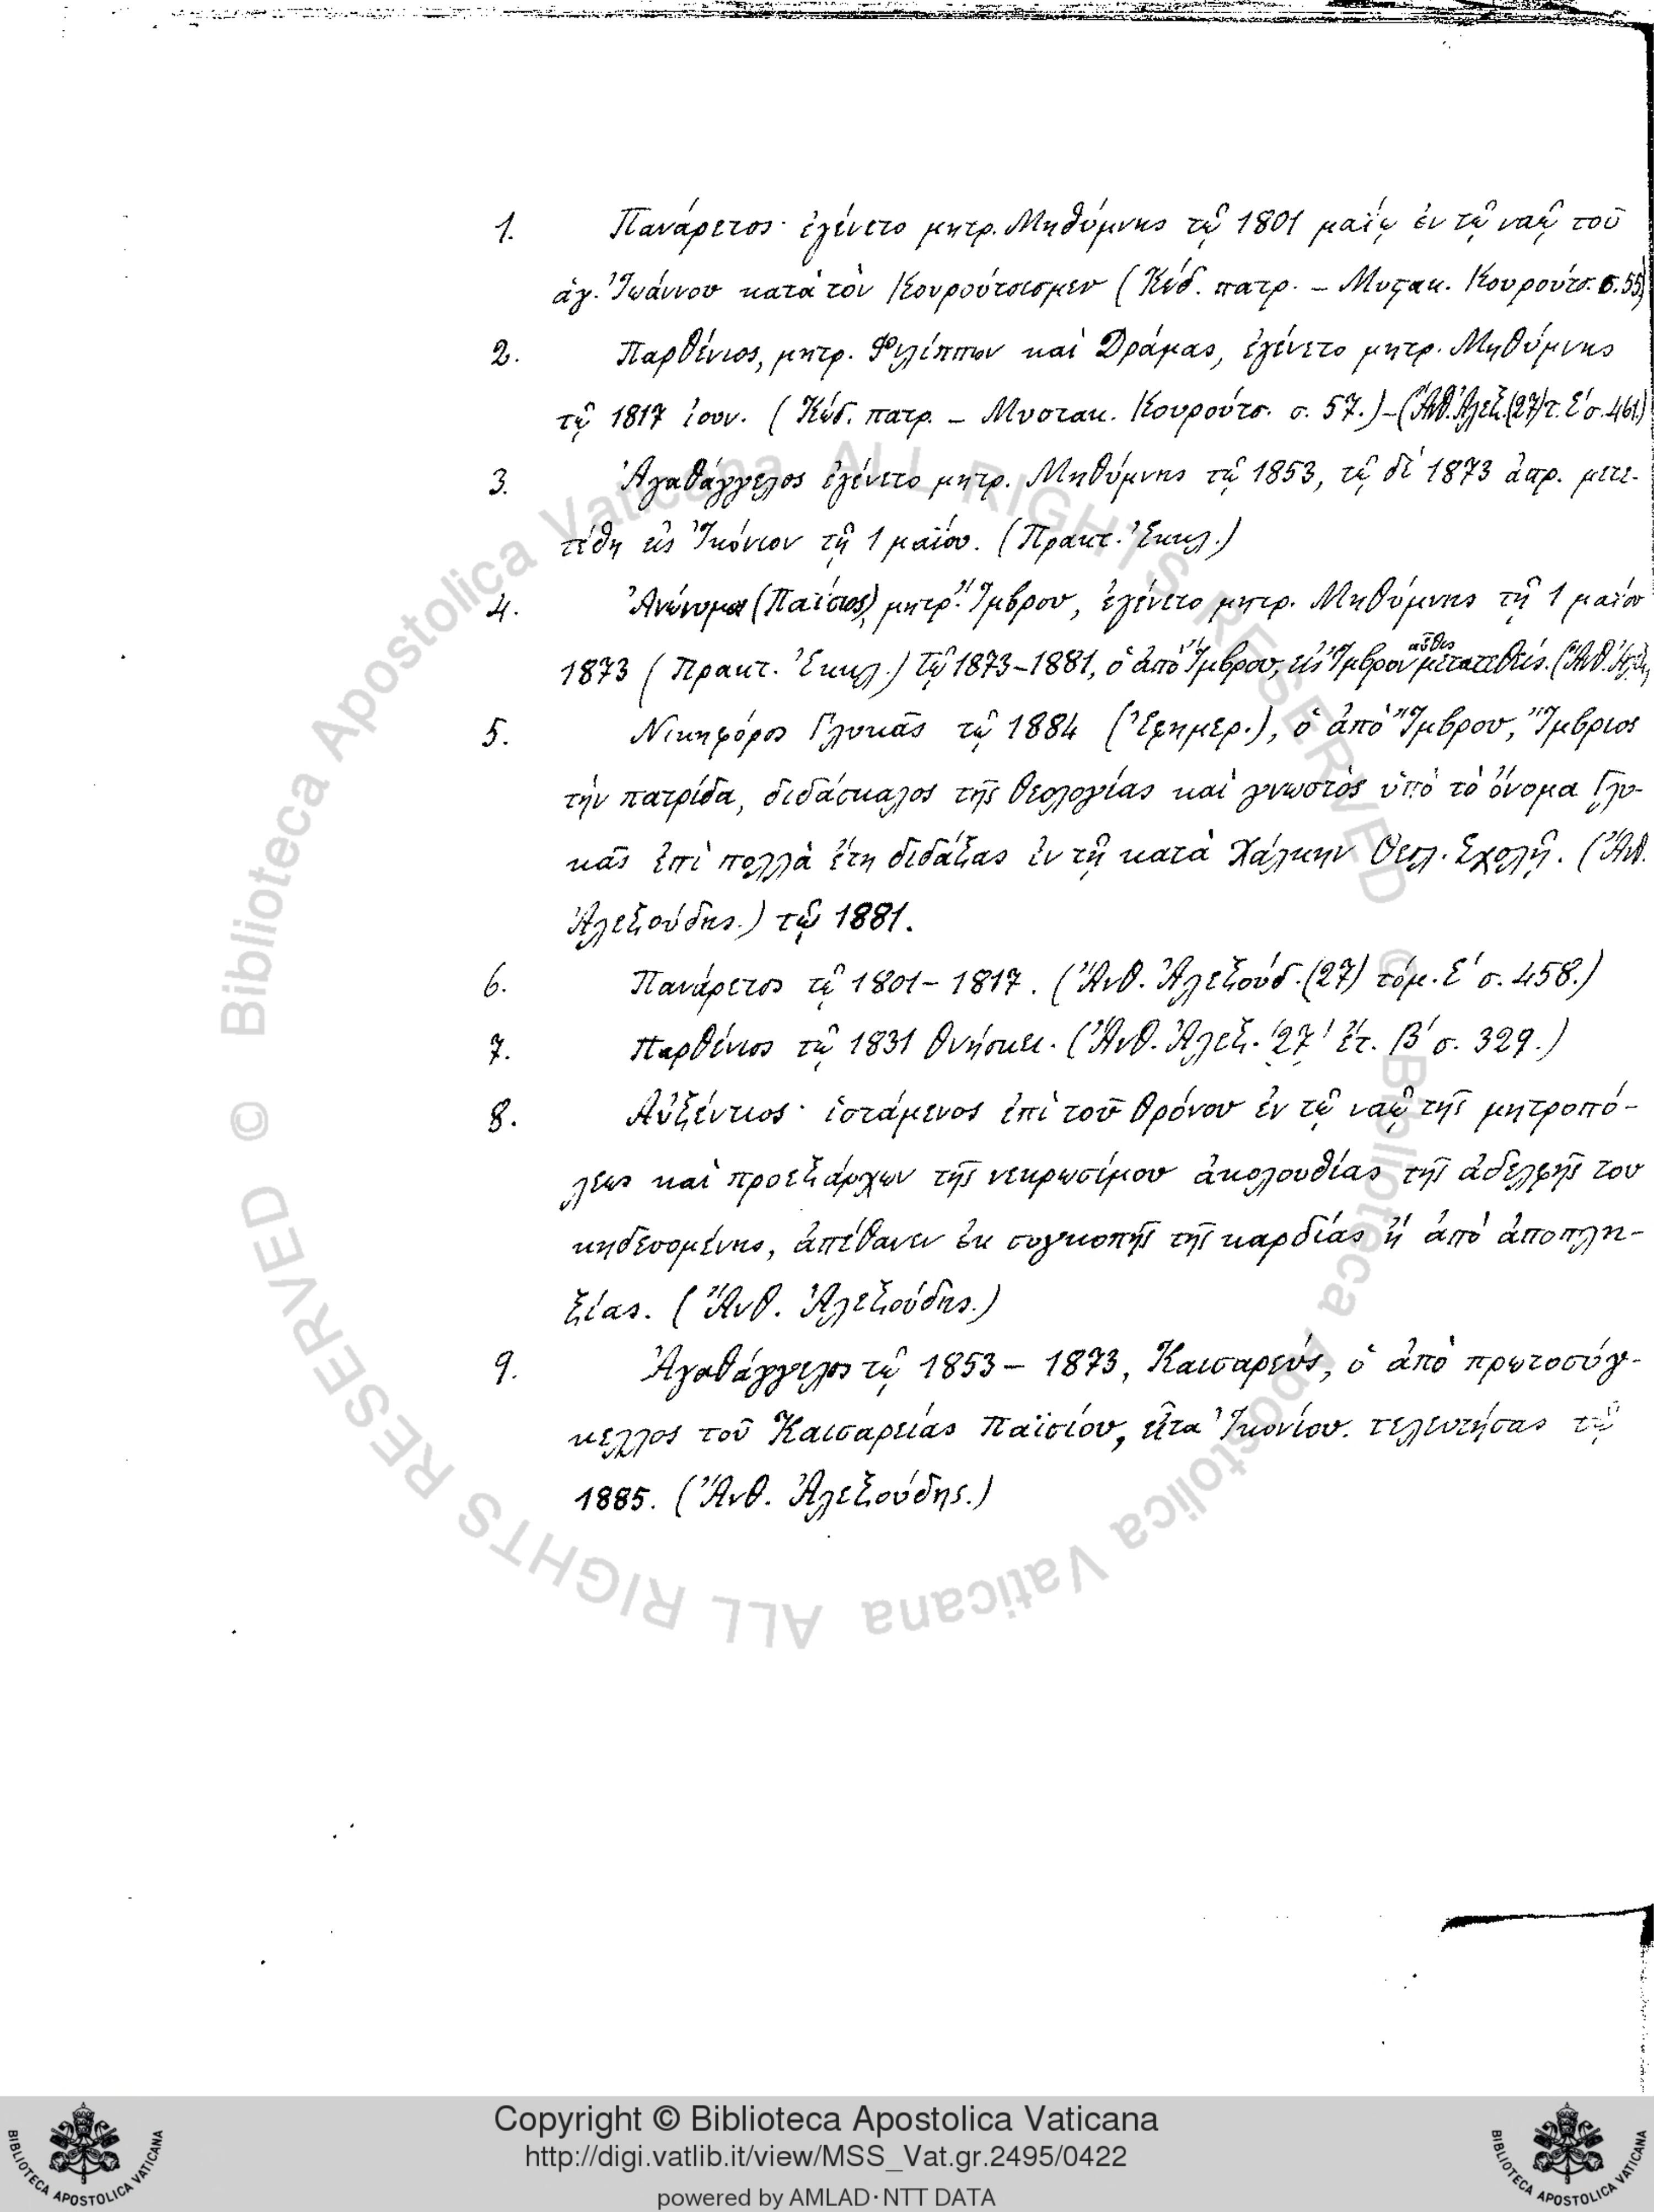 1. Πανάρετος· ἐγένετο μητρ. Μηθύμνης τῷ 1801 μαΐῳ ἐν τῷ ναῷ τοῦ
ἁγ. Ἰωάννου κατὰ τὸν Κουρούτσεσμεν (Κώδ. πατρ. – Μυστακ. Κουρούτσ. σ. 55)
2. Παρθένιος, μητρ. Φιλίππων καὶ Δράμας, ἐγένετο μητρ. Μηθύμνης
τῷ 1817 ἰουν. (Κώδ. πατρ. – Μυστακ. Κουρούτσ. σ. 57.) – (Ἄνθ. Ἀλεξ. (27) τ. Ε΄ σ. 461)
3. Ἀγαθάγγελος ἐγένετο μητρ. Μηθύμνης τῷ 1853, τῷ δὲ 1873 ἀπρ. μετε-
τέθη εἰς Ἰκόνιον τῇ 1 μαΐου. (Πρακτ. Ἐκκλ.)
4. Ἀνώνυμος (Παΐσιος), μητρ. Ἴμβρου, ἐγένετο μητρ. Μηθύμνης τῇ 1 μαΐου
1873 (Πρακτ. Ἐκκλ.) τῷ 1873–1881, ὁ ἀπὸ Ἴμβρου, εἰς Ἴμβρον αὖθις μετατεθείς. (Ἄνθ. Ἀλεξ.
5. Νικηφόρος Γλυκᾶς τῷ 1884 (Ἐφημερ.), ὁ ἀπὸ Ἴμβρου, Ἴμβριος
τὴν πατρίδα, διδάσκαλος τῆς θεολογίας καὶ γνωστὸς ὑπὸ τὸ ὄνομα Γλυ-
κᾶς ἐπὶ πολλὰ ἔτη διδάξας ἐν τῇ κατὰ Χάλκην Θεολ. Σχολῇ. (Ἄνθ.
Ἀλεξούδης.) τῷ 1881.
6. Πανάρετος τῷ 1801–1817. (Ἄνθ. Ἀλεξούδ. (27) τόμ. Ε΄ σ. 458.)
7. Παρθένιος τῷ 1831 θνήσκει. (Ἄνθ. Ἀλεξ. (27) ἔτ. Β΄ σ. 329.)
8. Αὐξέντιος· ἱστάμενος ἐπὶ τοῦ θρόνου ἐν τῷ ναῷ τῆς μητροπό-
λεως καὶ προεξάρχων τῆς νεκρωσίμου ἀκολουθίας τῆς ἀδελφῆς του
κηδευομένης, ἀπέθανεν ἐκ συγκοπῆς τῆς καρδίας ἢ ἀπὸ ἀποπλη-
ξίας. (Ἄνθ. Ἀλεξούδης.)
9. Ἀγαθάγγελος τῷ 1853–1873, Καισαρεύς, ὁ ἀπὸ πρωτοσύγ-
κελλος τοῦ Καισαρείας Παϊσίου, εἶτα Ἰκονίου. τελευτήσας τῷ
1885. (Ἄνθ. Ἀλεξούδης.)
© Biblioteca Apostolica Vaticana ALL RIGHTS RESERVED
© Biblioteca Apostolica Vaticana ALL RIGHTS RESERVED
Copyright © Biblioteca Apostolica Vaticana
http://digi.vatlib.it/view/MSS_Vat.gr.2495/0422
powered by AMLAD·NTT DATA
BIBLIOTECA APOSTOLICA VATICANA
BIBLIOTECA APOSTOLICA VATICANA